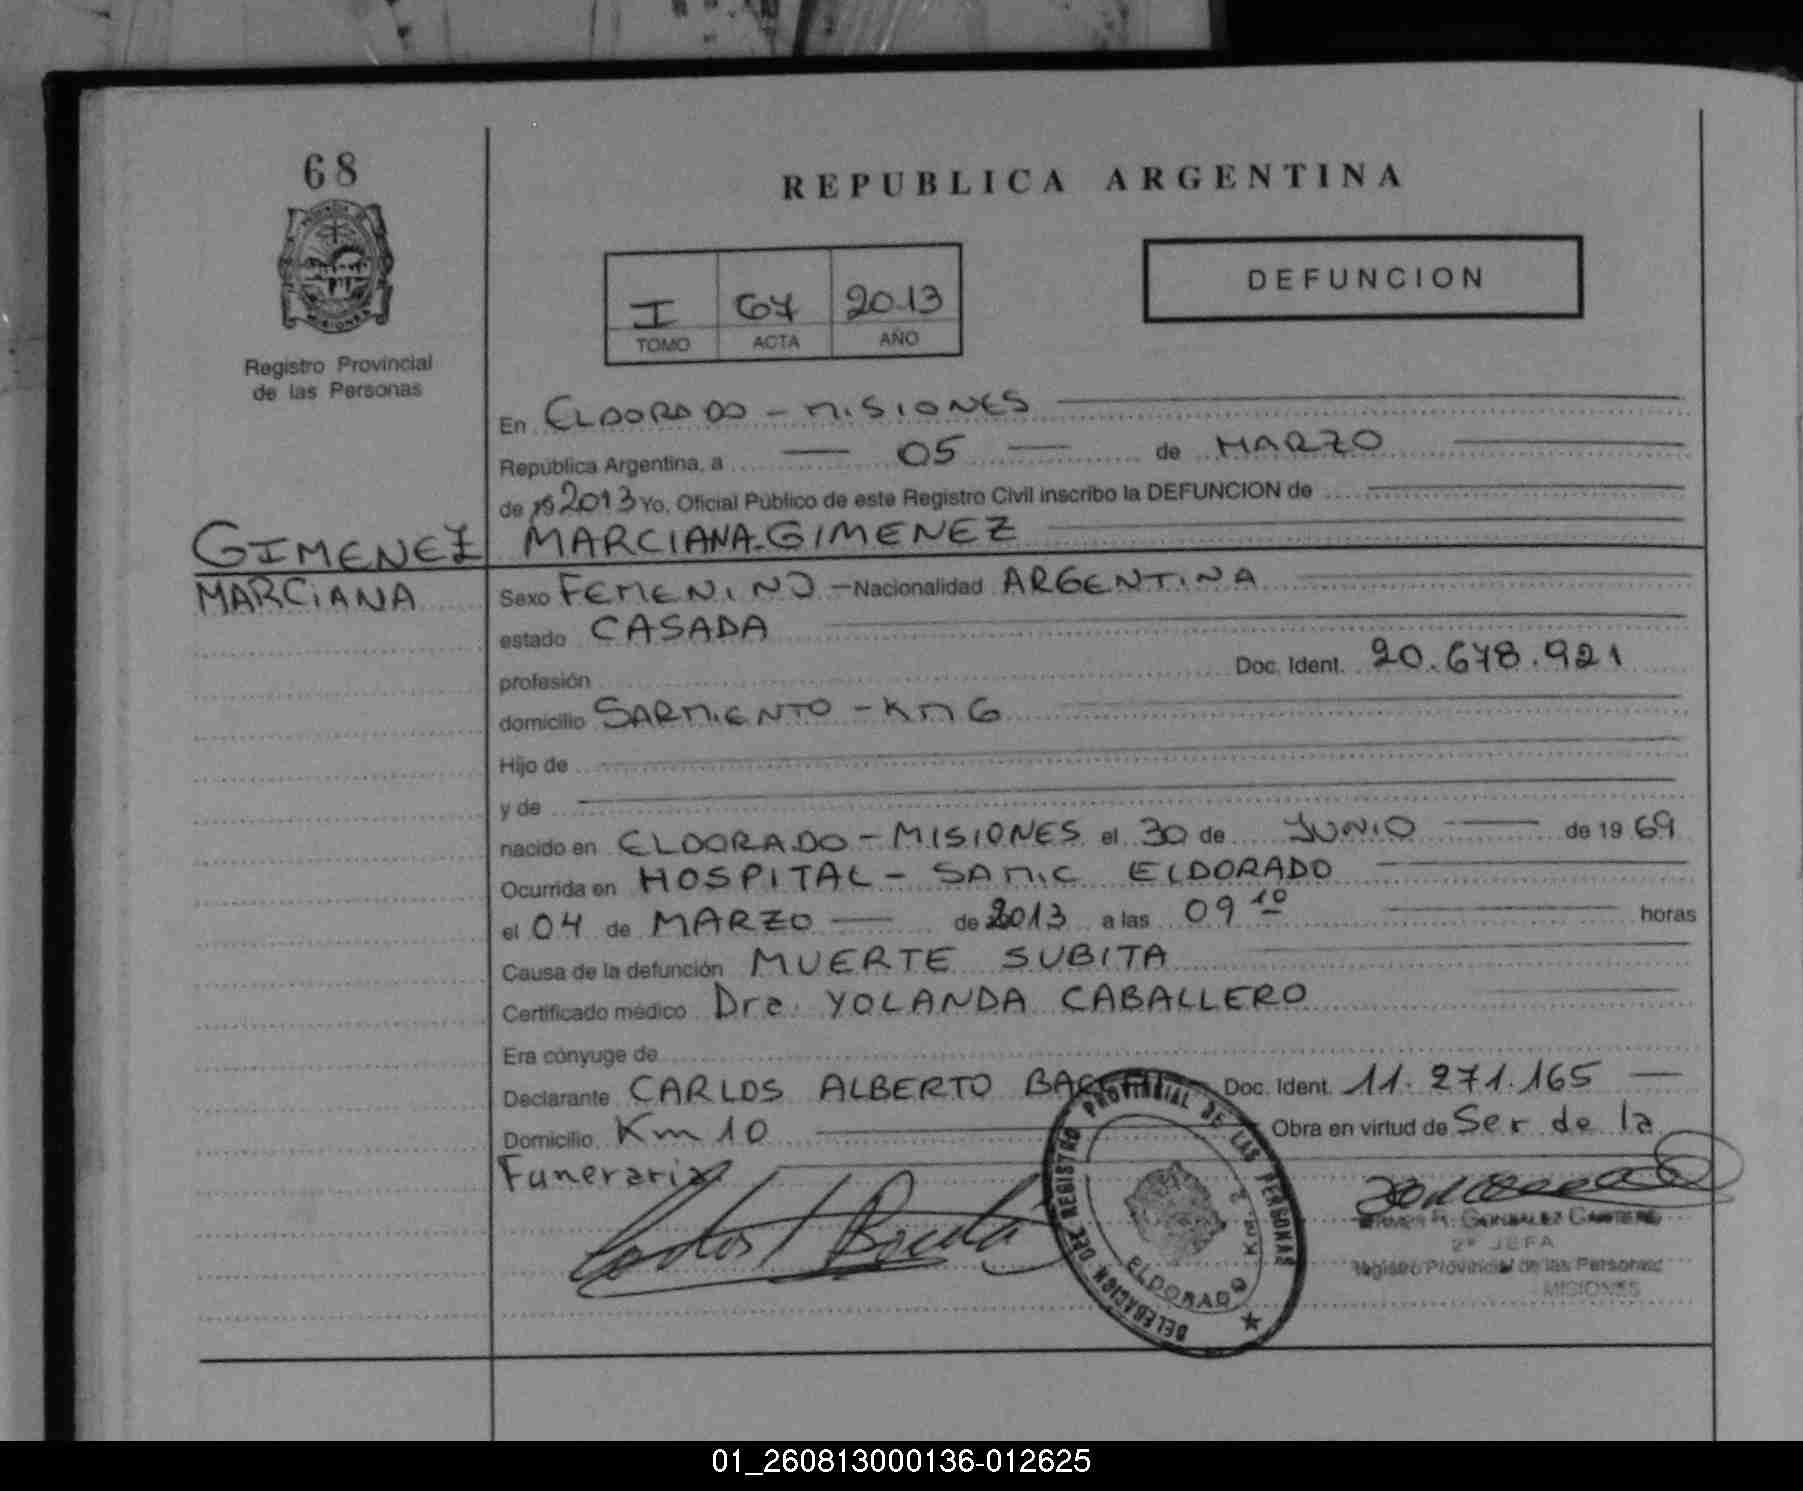 68
REPUBLICA ARGENTINA
DEFUNCION
I 67 2013
TOMO ACTA AÑO
Registro Provincial
de las Personas
En ELDORADO - MISIONES
República Argentina, a — 05 — de MARZO
de 19 2013 Yo, Oficial Público de este Registro Civil inscribo la DEFUNCION de
GIMENEZ MARCIANA GIMENEZ
MARCIANA
Sexo FEMENINO - Nacionalidad ARGENTINA
estado CASADA
profesión Doc. Ident. 20.678.921
domicilio SARMIENTO - KM 6
Hijo de
y de
nacido en ELDORADO - MISIONES el 30 de JUNIO — de 19 69
Ocurrida en HOSPITAL - SAMIC ELDORADO
el 04 de MARZO — de 2013 a las 09 10 horas
Causa de la defunción MUERTE SUBITA
Certificado médico Dra. YOLANDA CABALLERO
Era cónyuge de
Declarante CARLOS ALBERTO Doc. Ident. 11.271.165 —
Domicilio Km 10 Obra en virtud de Ser de la
Funeraria
DELEGACION DEL REGISTRO PROVINCIAL DE LAS PERSONAS
ELDORADO Km 2
R. GONZALEZ
2º JEFA
Registro Provincial de las Personas
MISIONES
01_260813000136-012625